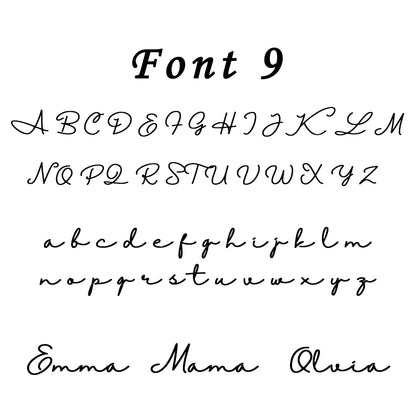 Font 9
A B C D E F G H I J K L M
N O P Q R S T U V W X Y Z
a b c d e f g h i j k l m
n o p q r s t u v w x y z
Emma Mama Olvia